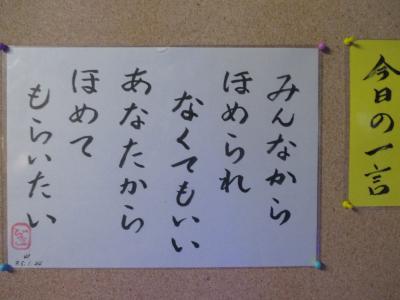 今日の一言
みんなから
ほめられ
なくてもいい
あなたから
ほめて
もらいたい